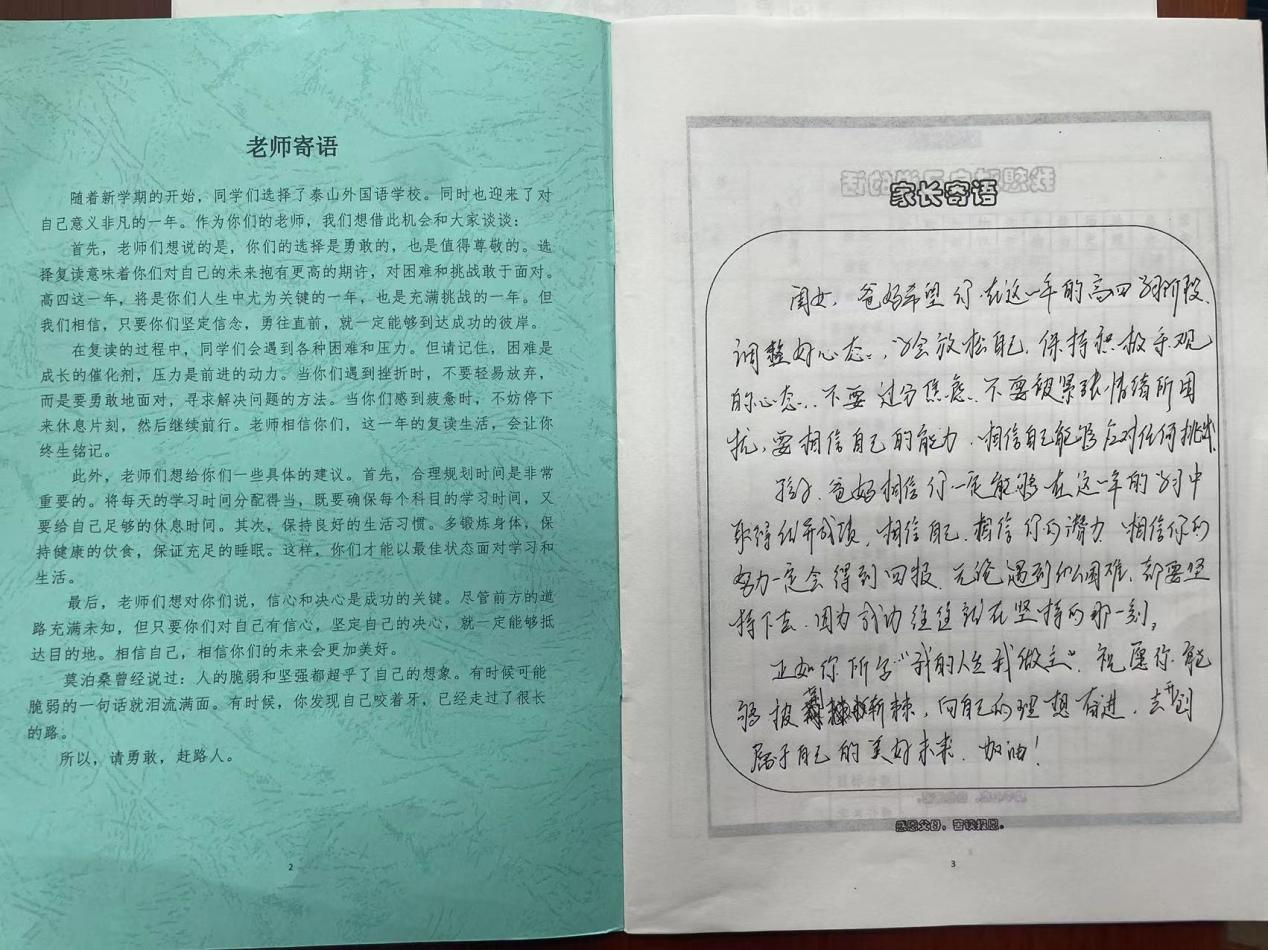 老师寄语
随着新学期的开始，同学们选择了泰山外国语学校。同时也迎来了对
自己意义非凡的一年。作为你们的老师，我们想借此机会和大家谈谈：
首先，老师们想说的是，你们的选择是勇敢的，也是值得尊敬的。选
择复读意味着你们对自己的未来抱有更高的期许，对困难和挑战敢于面对。
高四这一年，将是你们人生中尤为关键的一年，也是充满挑战的一年。但
我们相信，只要你们坚定信念，勇往直前，就一定能够到达成功的彼岸。
在复读的过程中，同学们会遇到各种困难和压力。但请记住，困难是
成长的催化剂，压力是前进的动力。当你们遇到挫折时，不要轻易放弃，
而是要勇敢地面对，寻求解决问题的方法。当你们感到疲惫时，不妨停下
来休息片刻，然后继续前行。老师相信你们，这一年的复读生活，会让你
终生铭记。
此外，老师们想给你们一些具体的建议。首先，合理规划时间是非常
重要的。将每天的学习时间分配得当，既要确保每个科目的学习时间，又
要给自己足够的休息时间。其次，保持良好的生活习惯。多锻炼身体，保
持健康的饮食，保证充足的睡眠。这样，你们才能以最佳状态面对学习和
生活。
最后，老师们想对你们说，信心和决心是成功的关键。尽管前方的道
路充满未知，但只要你们对自己有信心，坚定自己的决心，就一定能够抵
达目的地。相信自己，相信你们的未来会更加美好。
莫泊桑曾经说过：人的脆弱和坚强都超乎了自己的想象。有时候可能
脆弱的一句话就泪流满面。有时候，你发现自己咬着牙，已经走过了很长
的路。
所以，请勇敢，赶路人。
2
家长寄语
闺女，爸妈希望你在这一年的高四学习阶段，
调整好心态，学会放松自己，保持积极乐观
的心态，不要过分焦虑，不要被紧张情绪所困
扰，要相信自己的能力，相信自己能够应对任何挑战。
孩子，爸妈相信你一定能够在这一年的学习中
取得优异成绩，相信自己，相信你的潜力，相信你的
努力一定会得到回报，无论遇到什么困难，都要坚
持下去，因为成功往往就在坚持的那一刻。
正如你所写“我的人生我做主”，祝愿你能
够披荆斩棘，向自己的理想奋进，去开创
属于自己的美好未来，加油！
感恩父母，
3